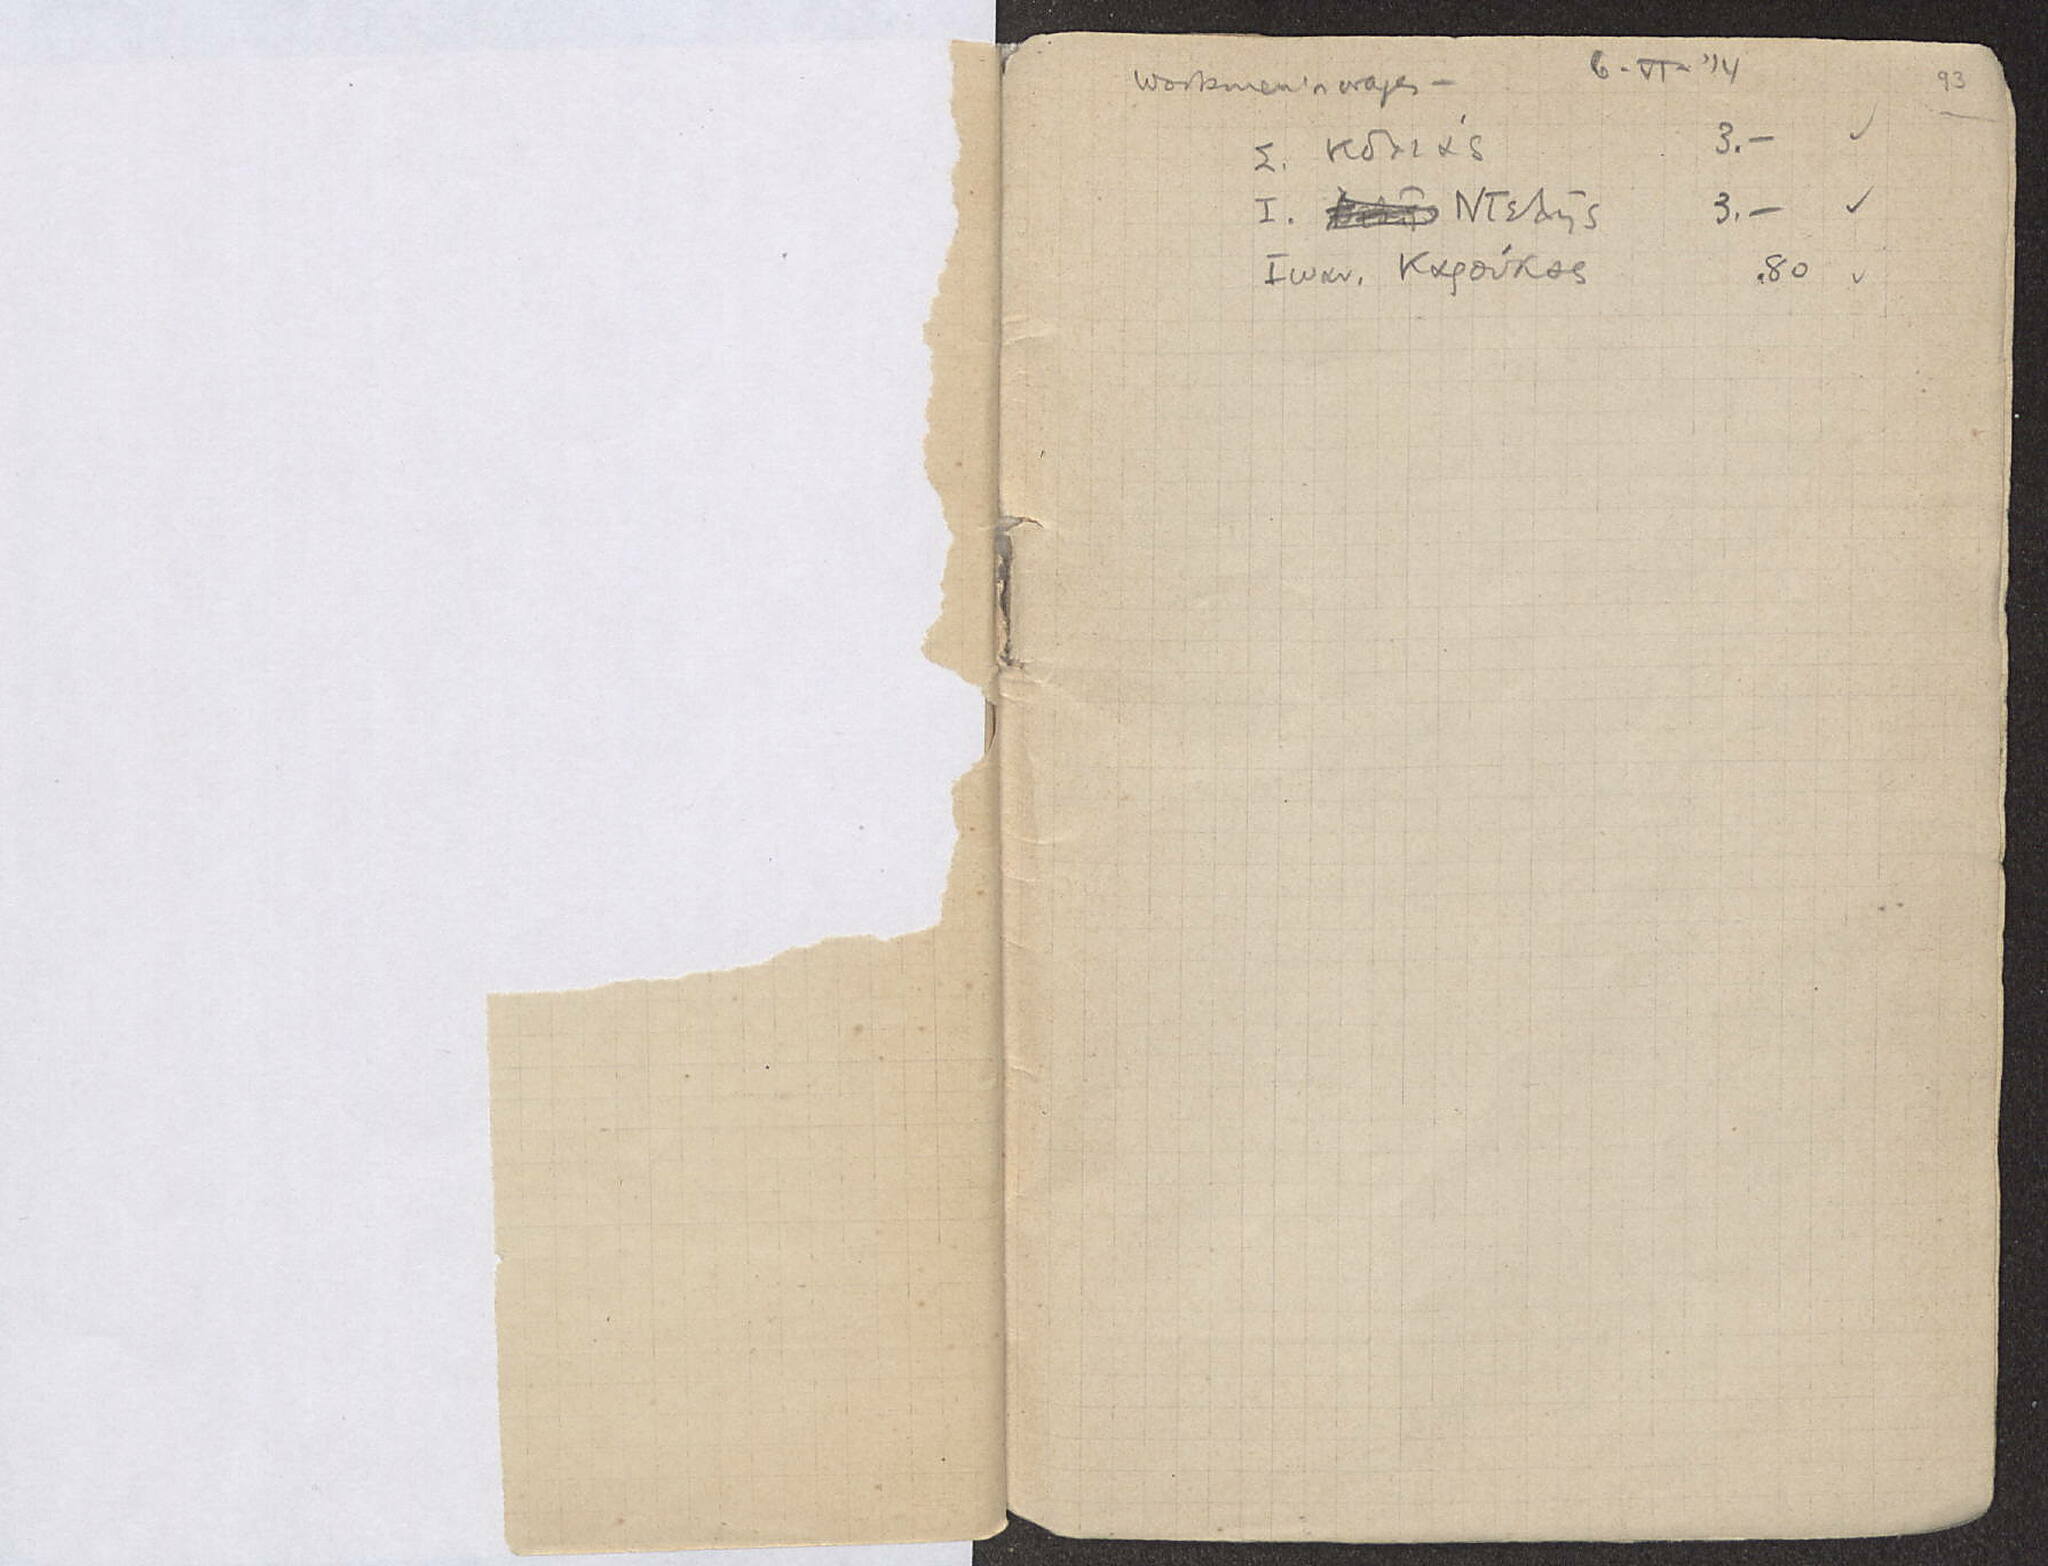 Workmen's wages – 6-VI-'14 93
Σ. Κολιάς 3.– ✓
Ι. Ντελῆς 3.– ✓
Ιωαν. Καρούκος .80 ✓